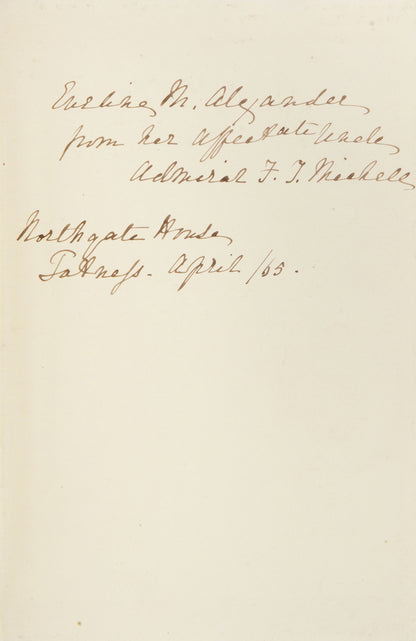 Eveline M. Alexander
from her affectate Uncle
Admiral F. T. Michell
Northgate House
Totness. April /65.